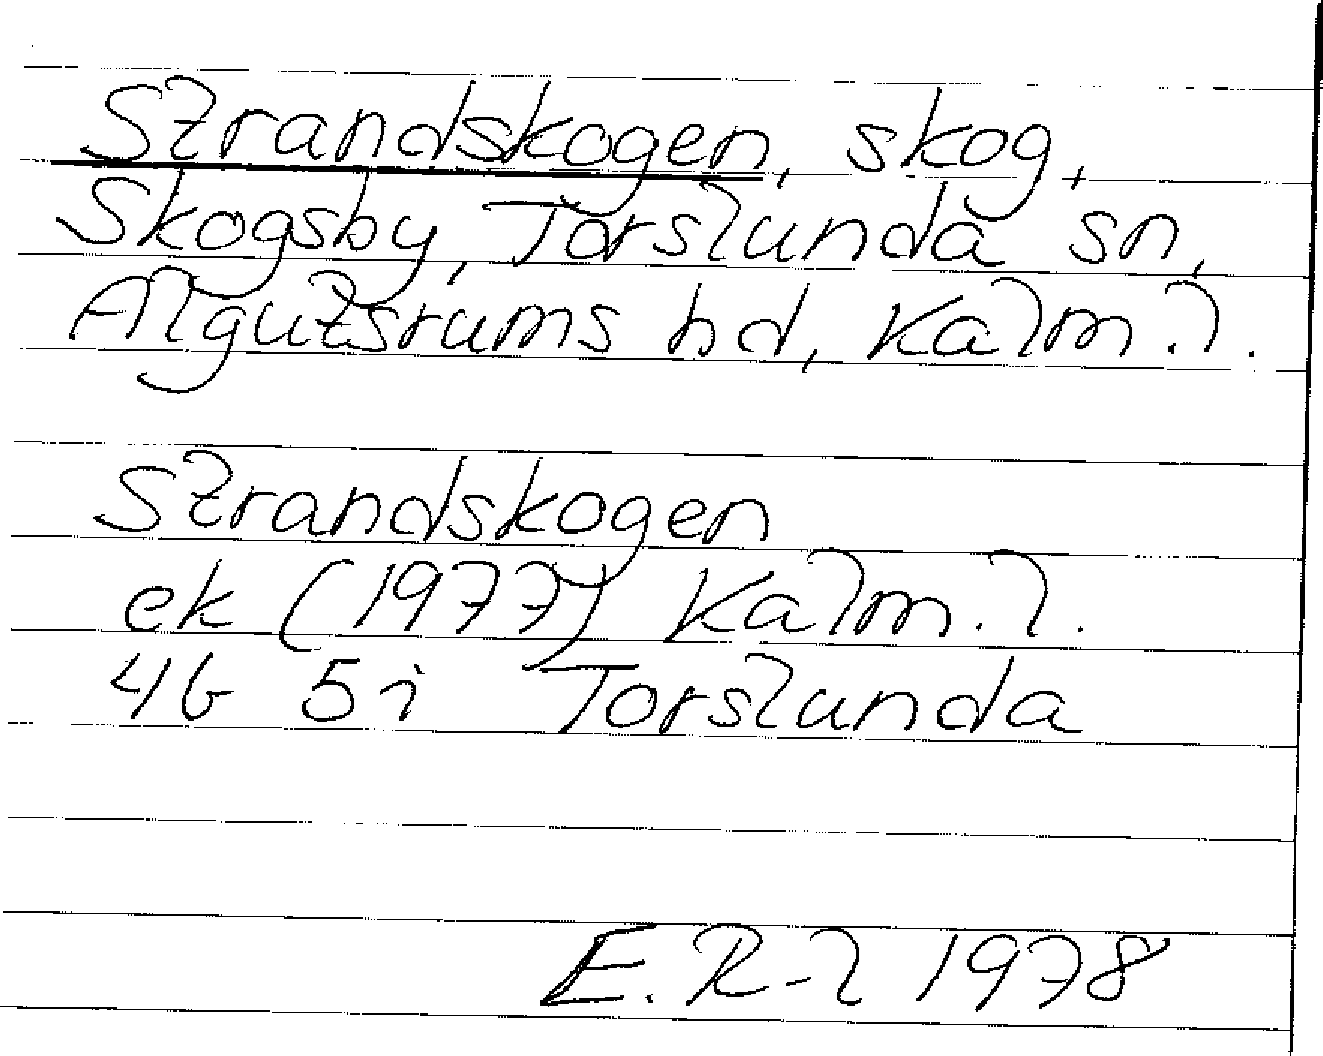 Strandskogen, skog,
Skogsby, Torslunda sn,
Algutsrums hd, Kalm. l.
Strandskogen
ek (1977) Kalm. l.
4G 5i Torslunda
E. R-l 1978